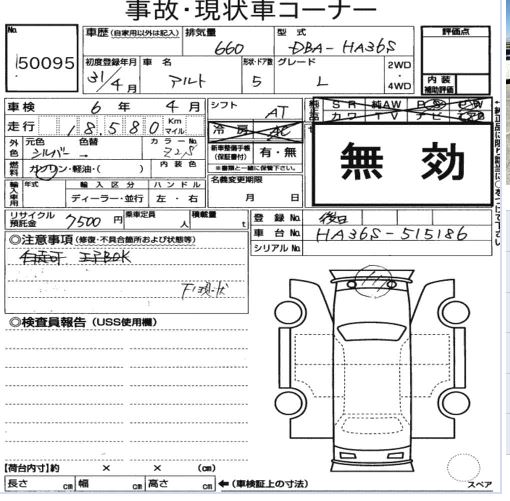 事故・現状車コーナー
No.
50095
車歴 (自家用以外は記入)
排気量
660
型式
DBA-HA36S
評価点
初度登録年月
31/4月
車名
アルト
形状・ドア数
5
グレード
L
2WD
・
4WD
内装
補助評価
車検 6年 4月
シフト
AT
走行 18,580 Km
マイル
冷房 AC
純正品
SR 純AW PS PW
カワ TV ナビ
無効
外色
元色
シルバー
色替
→
カラーNo.
Z2S
内装色
新車整備手帳
(保証書付)
有・無
※書類と一緒に保管下さい。
燃料
ガソリン・軽油・( )
輸入車用
年式
輸入区分
ディーラー・並行
ハンドル
左・右
名義変更期限
月 日
リサイクル
預託金
7500円
乗車定員
人
積載量
t
登録No.
後日
車台No.
HA36S-515186
シリアルNo.
◎注意事項 (修復・不具合箇所および状態等)
下回現状
◎検査員報告 (USS使用欄)
【荷台内寸】約 × × (cm)
長さ cm 幅 cm 高さ cm ←(車検証上の寸法)
スペア